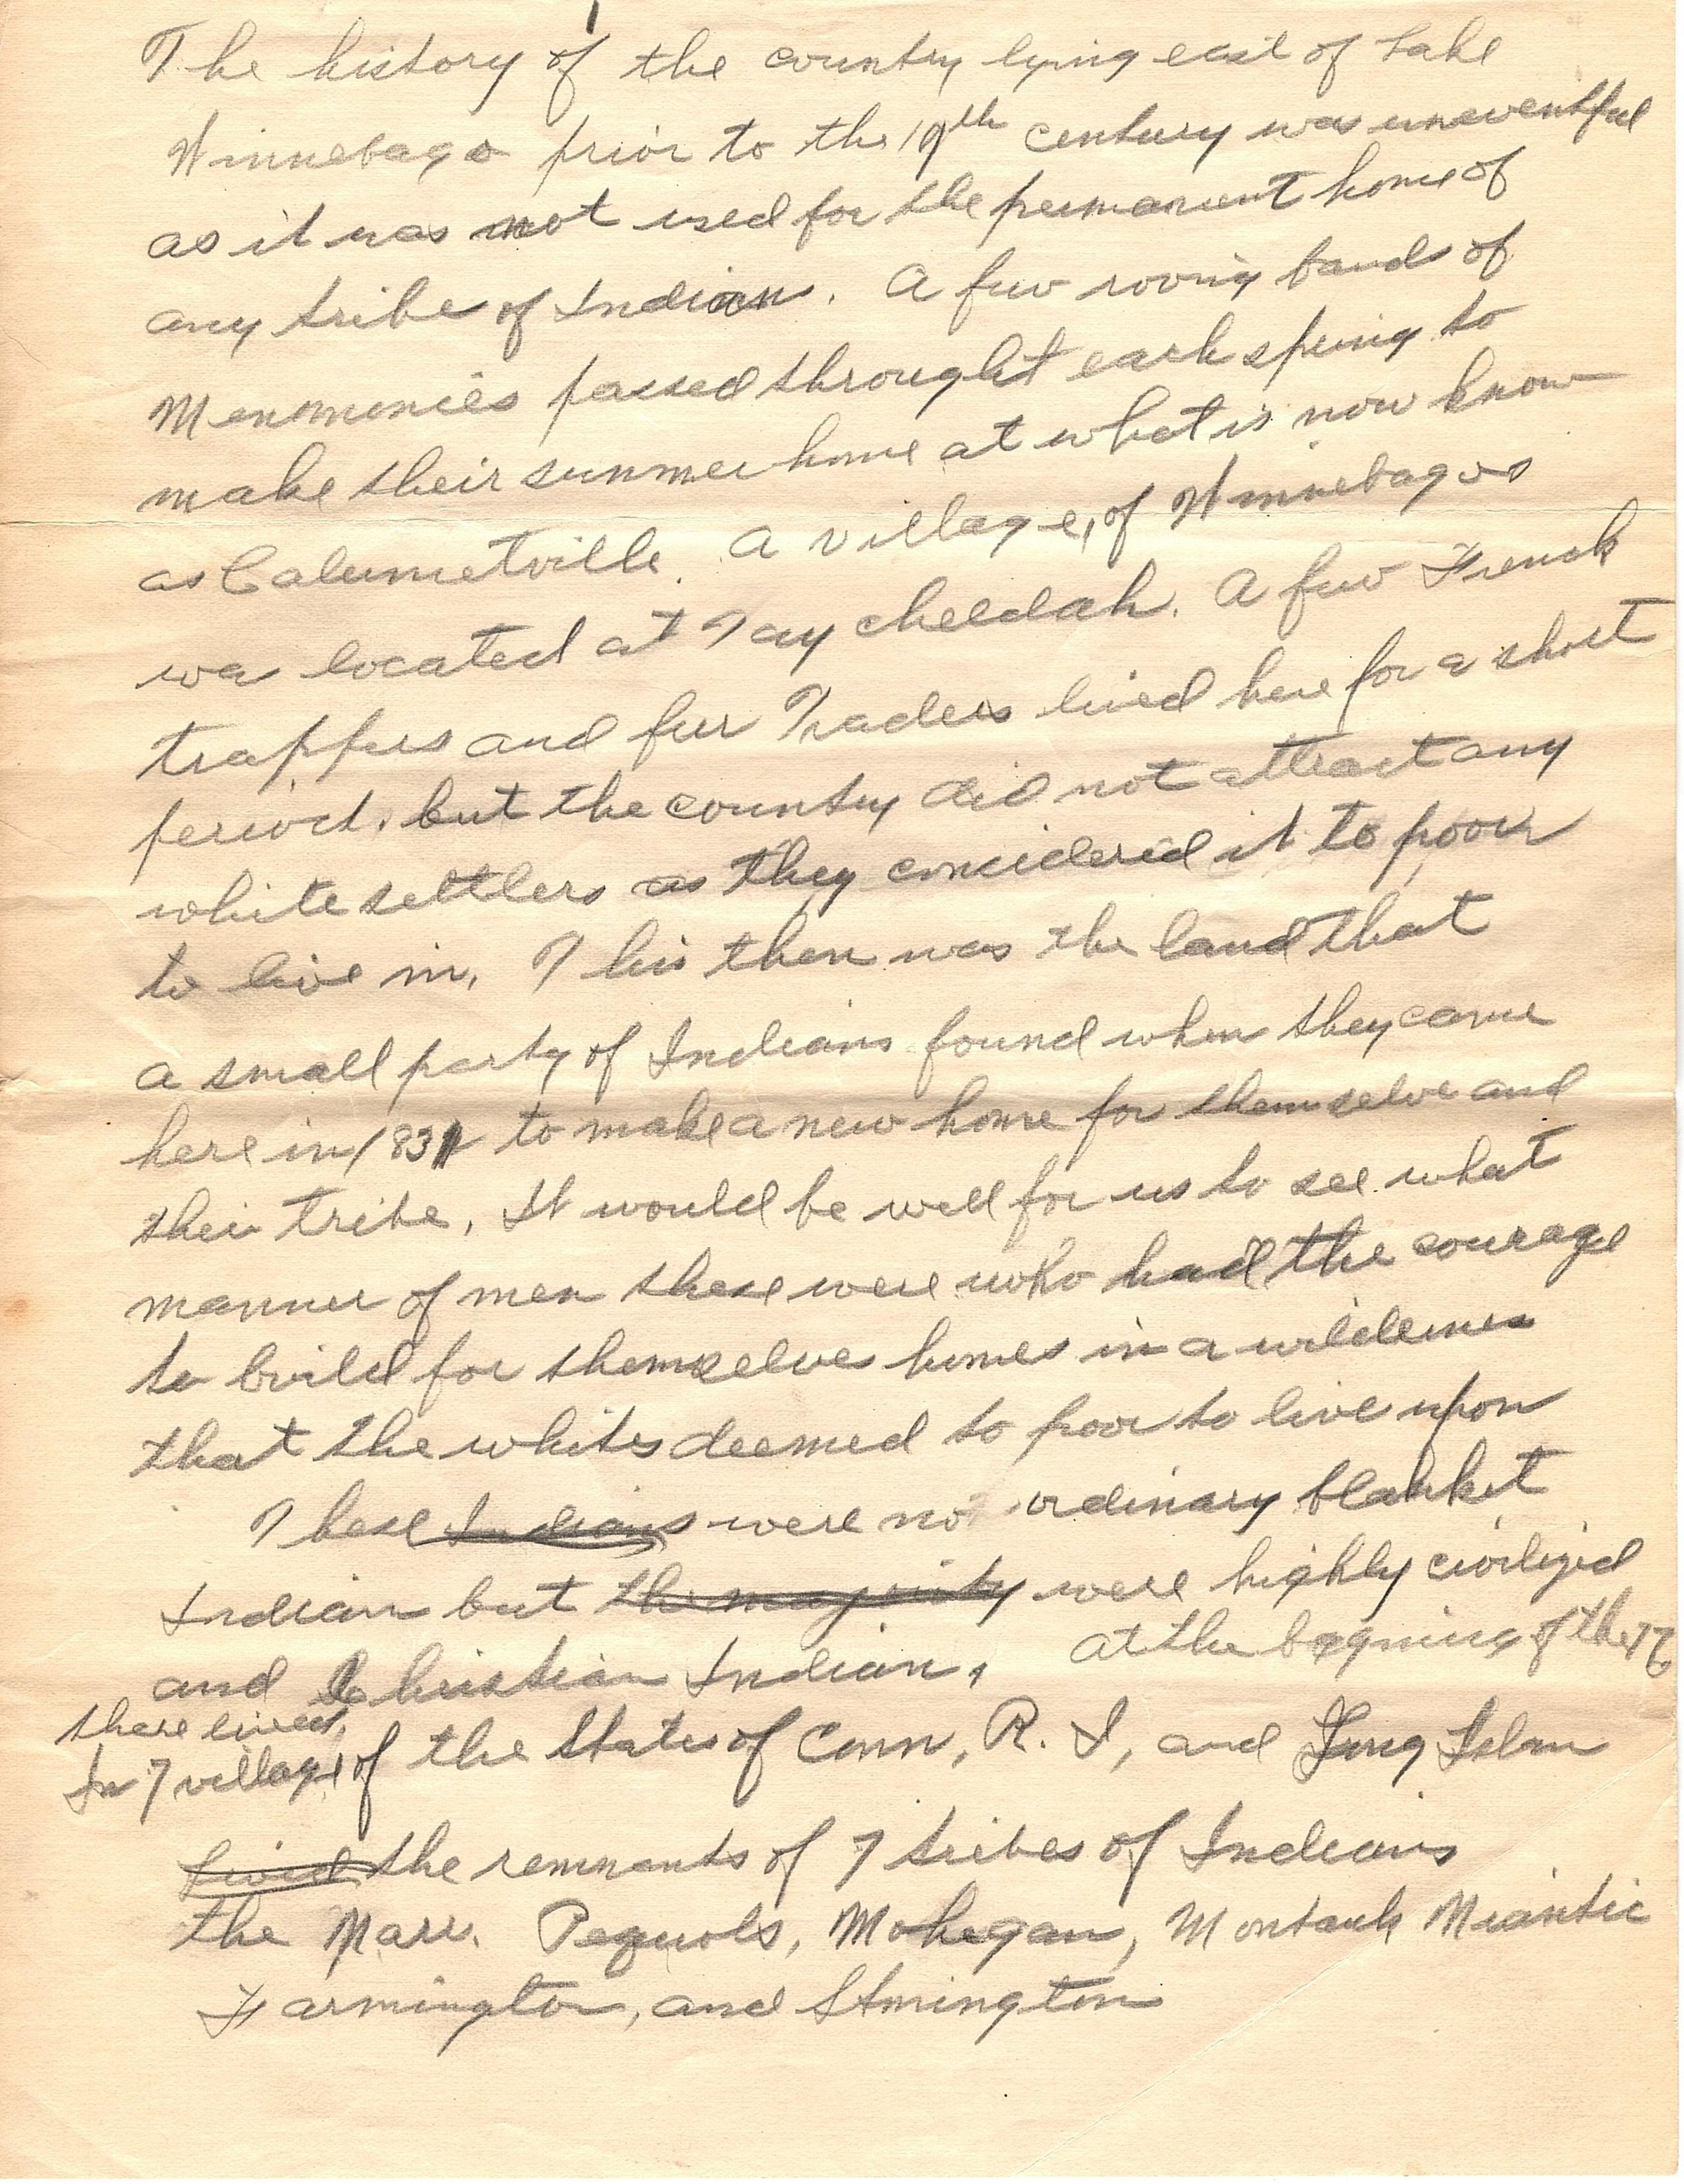 1
The history of the country lying east of Lake
Winnebago prior to the 19th century was uneventful
as it was not used for the permanent home of
any tribe of Indian. A few roving bands of
Menominies passed throught each spring to
make their summer home at what is now know
as Calumetville. A village, of Winnebagos
wa located at Taycheedah. A few French
trappers and fur Traders lived here for a short
period. but the country did not attract any
white settlers as they concidered it to poor
to live in. This then was the land that
a small party of Indians found when they came
here in 1831 to make a new home for themselve and
their tribe. It would be well for us to see what
manner of men these were who had the courage
to build for themselves homes in a wilderness
that the whites deemed to poor to live upon
These Indians were no ordinary blanket
Indian but the majority were highly civilized
and Christian Indian. at the begning of the 17
there lived
In 7 village of the States of Conn, R. I, and Long Islan
lived the remnants of 7 tribes of Indians
the Narr. Pequots, Mohegan, Montauk Niantic
Farmington, and Stonington